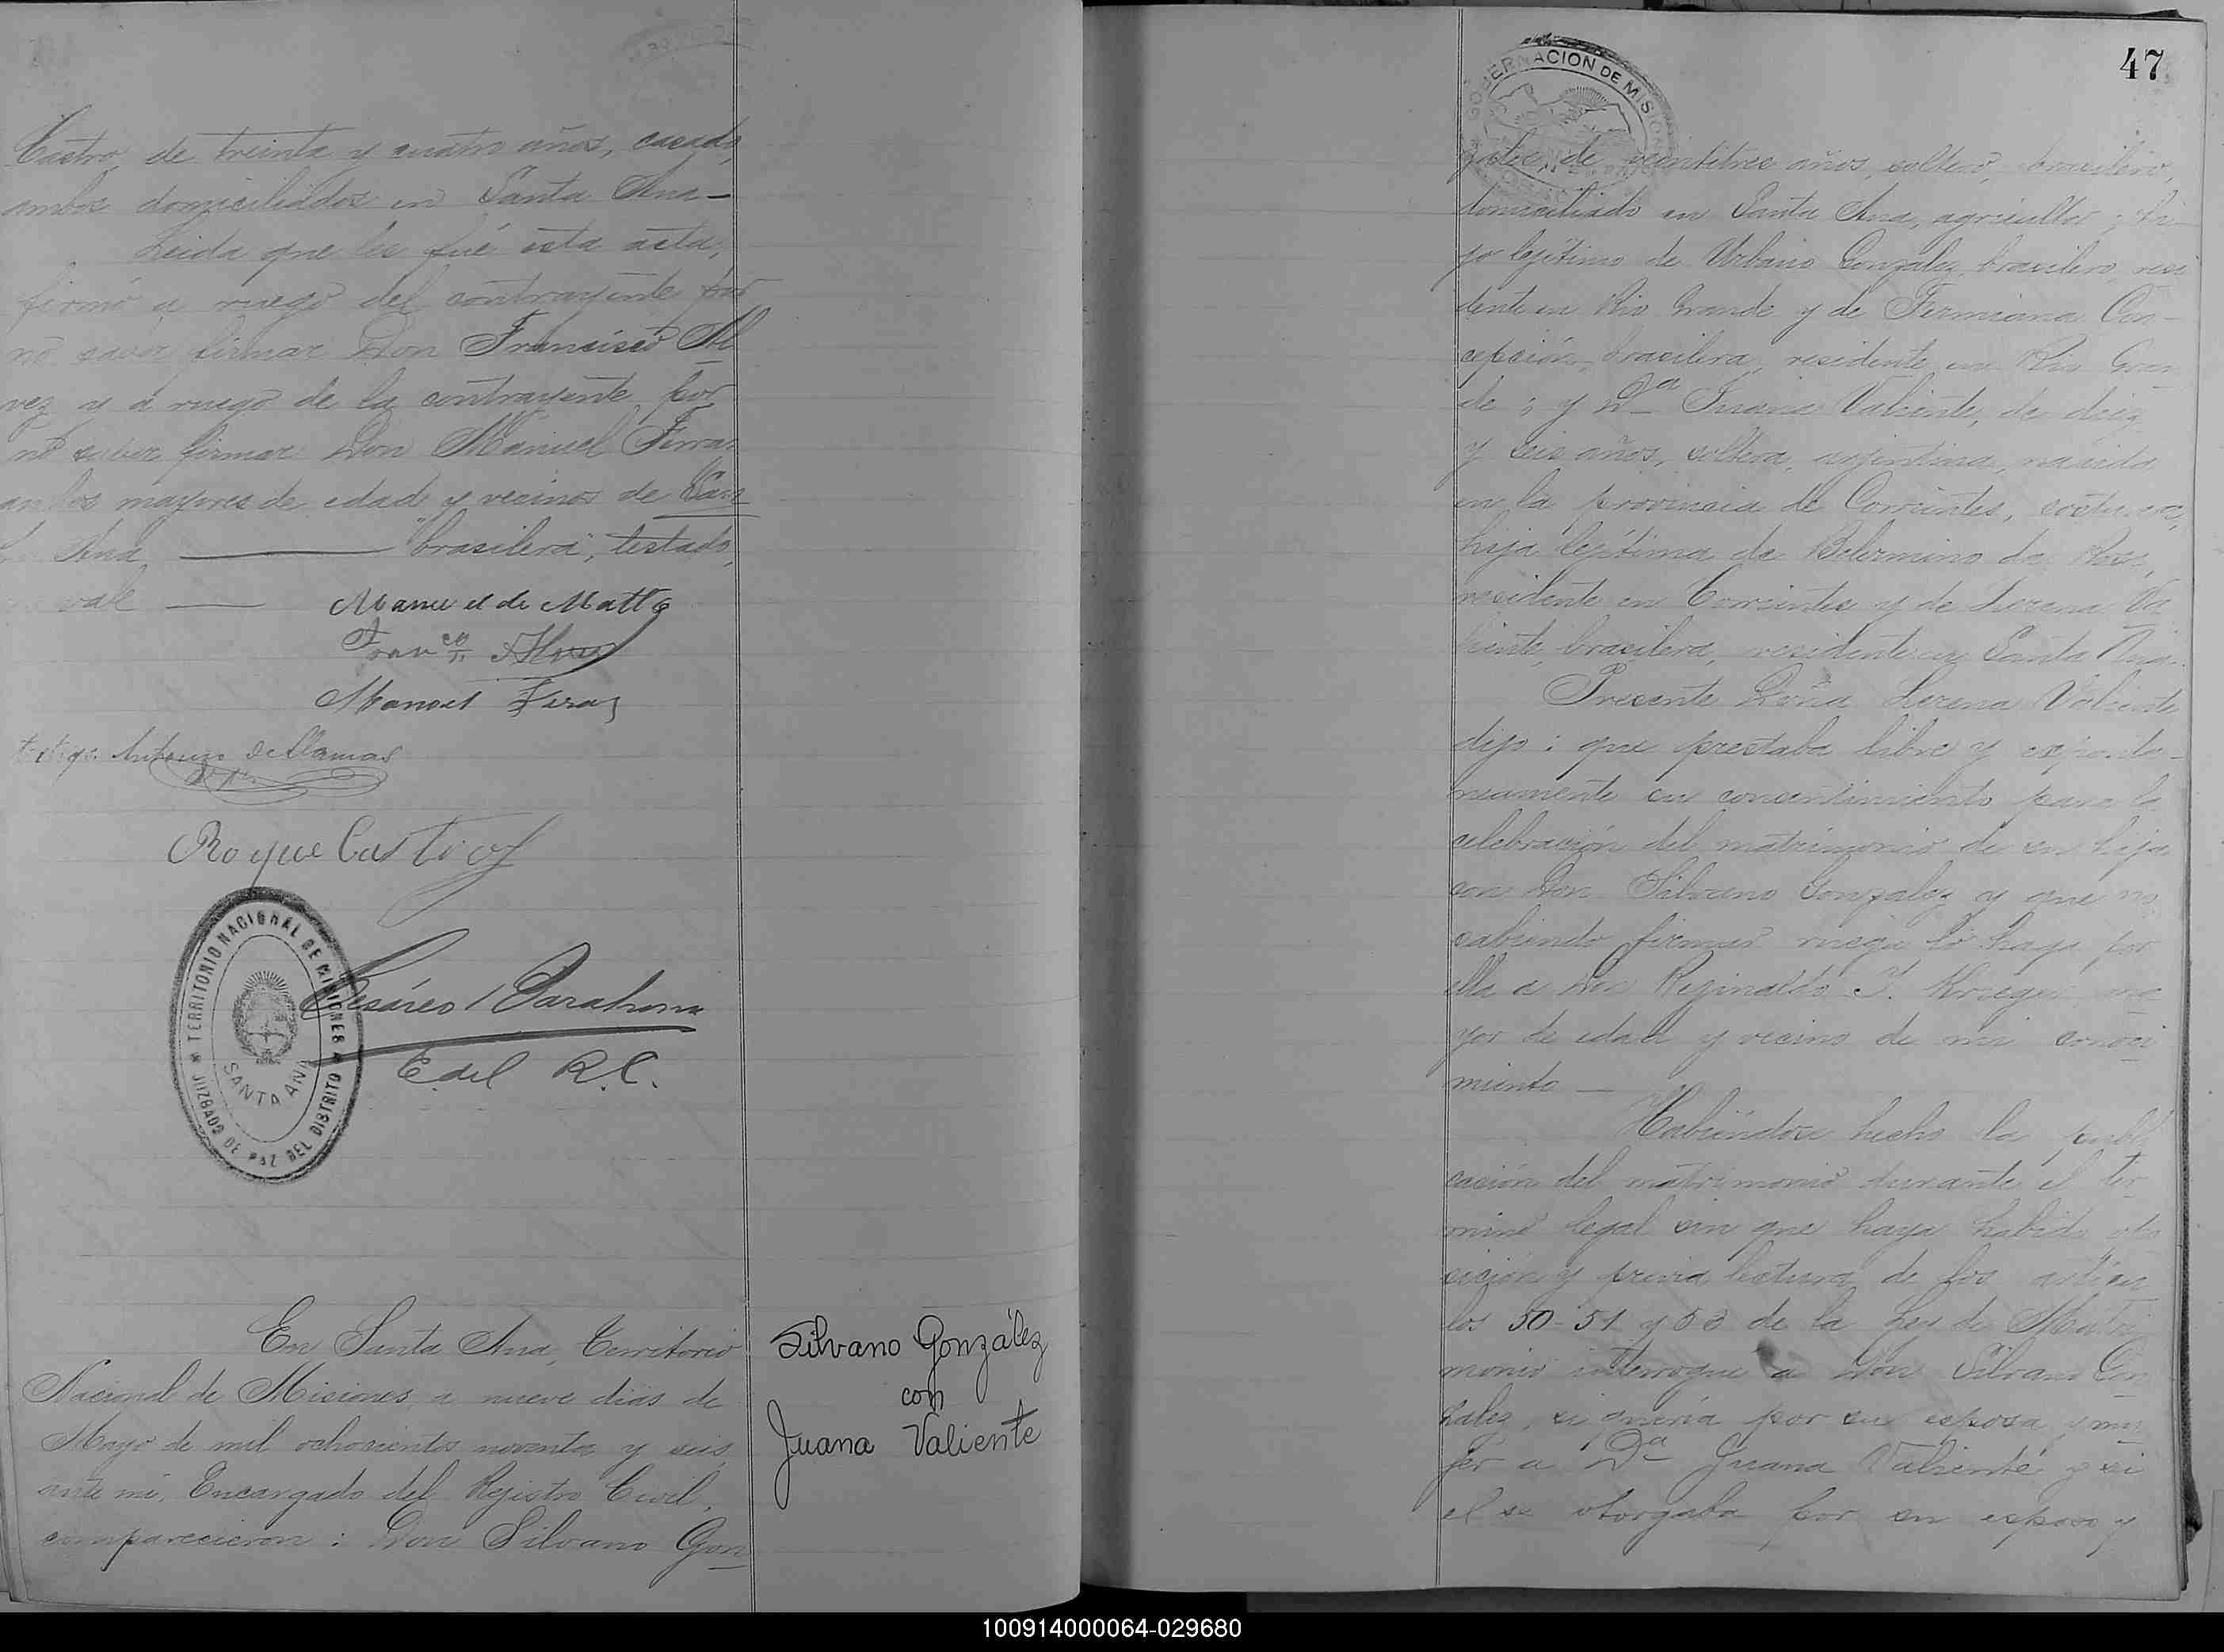 Castro, de treinta y cuatro años, casado,
ambos domiciliados en Santa Ana—
Leida que les fué esta acta,
firmó a ruego del contrayente por
no saber firmar Don Francisco Al
vez y a ruego de la contrayente por
no saber firmar Don Manuel Ferraz
ambos mayores de edad y vecinos de San
ta Ana — "brasilera", testado,
vale —
Manuel de Matto
Fran co
Manoel Feraz
testigo Antonio de Llamas
Roque Castro
TERRITORIO NACIONAL DE MISIONES
SANTA ANA
JUZGADO DE PAZ DEL DISTRITO
Cesáreo Barahona
E. del R.C.
En Santa Ana, Territorio
Nacional de Misiones, a nueve dias de
Mayo de mil ochocientos noventa y seis,
ante mi, Encargado del Rejistro Civil,
comparecieron: Don Silvano Gon
Silvano González
con
Juana Valiente
47
GOBERNACION DE MISIONES
zalez, de veintitres años, soltero, brasilero,
domiciliado en Santa Ana, agricultor, hi
jo lejítimo de Urbano Gonzalez, brasilero, resi
dente en Rio Grande y de Firmiana Con
cepción, brasilera, residente en Rio Gran
de; y Da Juana Valiente, de diez
y seis años, soltera, arjentina, nacida
en la provincia de Corrientes, costurera,
hija lejítima de Belermino da
residente en Corrientes y de Lorena Va
liente, brasilera, residente en Santa Ana.
Presente Doña Lorena Valiente
dijo: que prestaba libre y esponta
neamente su consentimiento para la
celebración del matrimonio de su hija
con Don Silvano Gonzalez y que no
sabiendo firmar ruega lo haga por
ella a Don Rejinaldo J. Krieger ma
yor de edad y vecino de mi conoci
miento —
Habiéndose hecho la publi
cación del matrimonio durante el tér
mino legal sin que haya habido opo
sición y previa lectura de los artícu
los 50-51 y 53 de la Ley de Matri
monio interrogué a Don Silvano Gon
zalez, si quería por su esposa y mu
jer a Da Juana Valiente y si
el se otorgaba por su esposo y
100914000064-029680